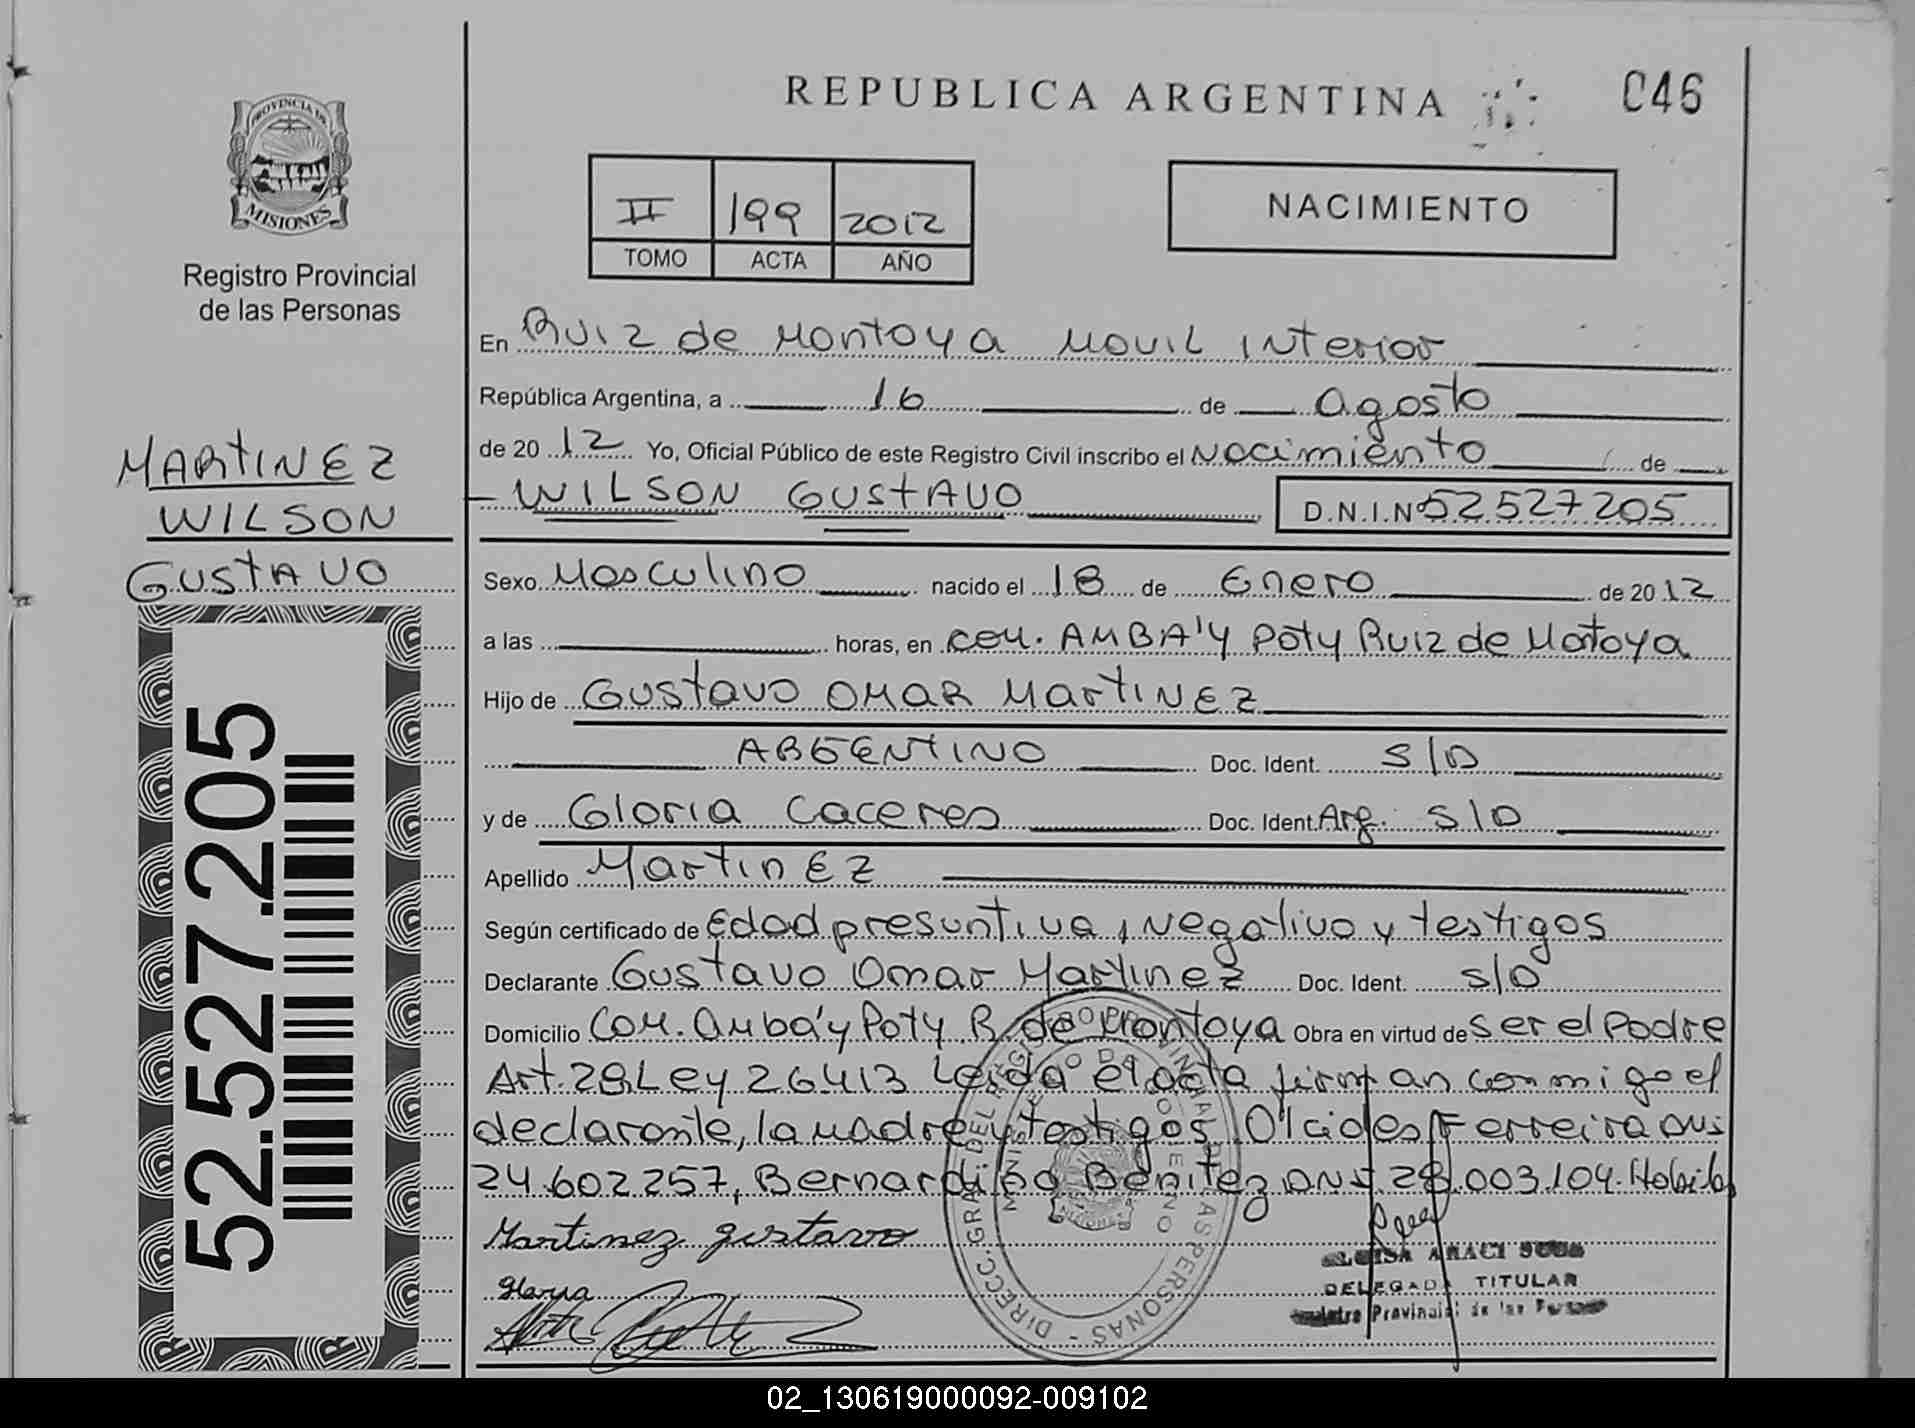 REPUBLICA ARGENTINA
046
PROVINCIA DE
MISIONES
Registro Provincial
de las Personas
II 199 2012
TOMO ACTA AÑO
NACIMIENTO
MARTINEZ
WILSON
GUSTAVO
52.527.205
En Ruiz de Montoya Movil Interior
República Argentina, a 16 de Agosto
de 2012 Yo, Oficial Público de este Registro Civil inscribo el Nacimiento de
WILSON GUSTAVO D.N.I.Nº 52527205
Sexo Masculino nacido el 18 de Enero de 2012
a las horas, en COM. AMBA'Y Poty Ruiz de Montoya
Hijo de Gustavo OMAR MartINEZ
ARGENTINO Doc. Ident. S/D
y de Gloria Caceres Doc. Ident. Arg. S/D
Apellido MartinEZ
Según certificado de Edad presuntiva, Negativo y testigos
Declarante Gustavo Omar Martinez Doc. Ident. S/D
Domicilio COM. Amba'y Poty R. de Montoya Obra en virtud de ser el Padre
Art. 28 Ley 26413 Leida el acta firman conmigo el
declarante, la madre y testigos Olcides Ferreira DNI
24.602257, Bernardino Benitez DNI 28.003.104.
Martinez gustavo
gloria
DIRECC. GRAL. DEL REGISTRO PROVINCIAL DE LAS PERSONAS
MINISTERIO DE GOBIERNO
MISIONES
DELEGADA TITULAR
Registro Provincial de las Personas
02_130619000092-009102